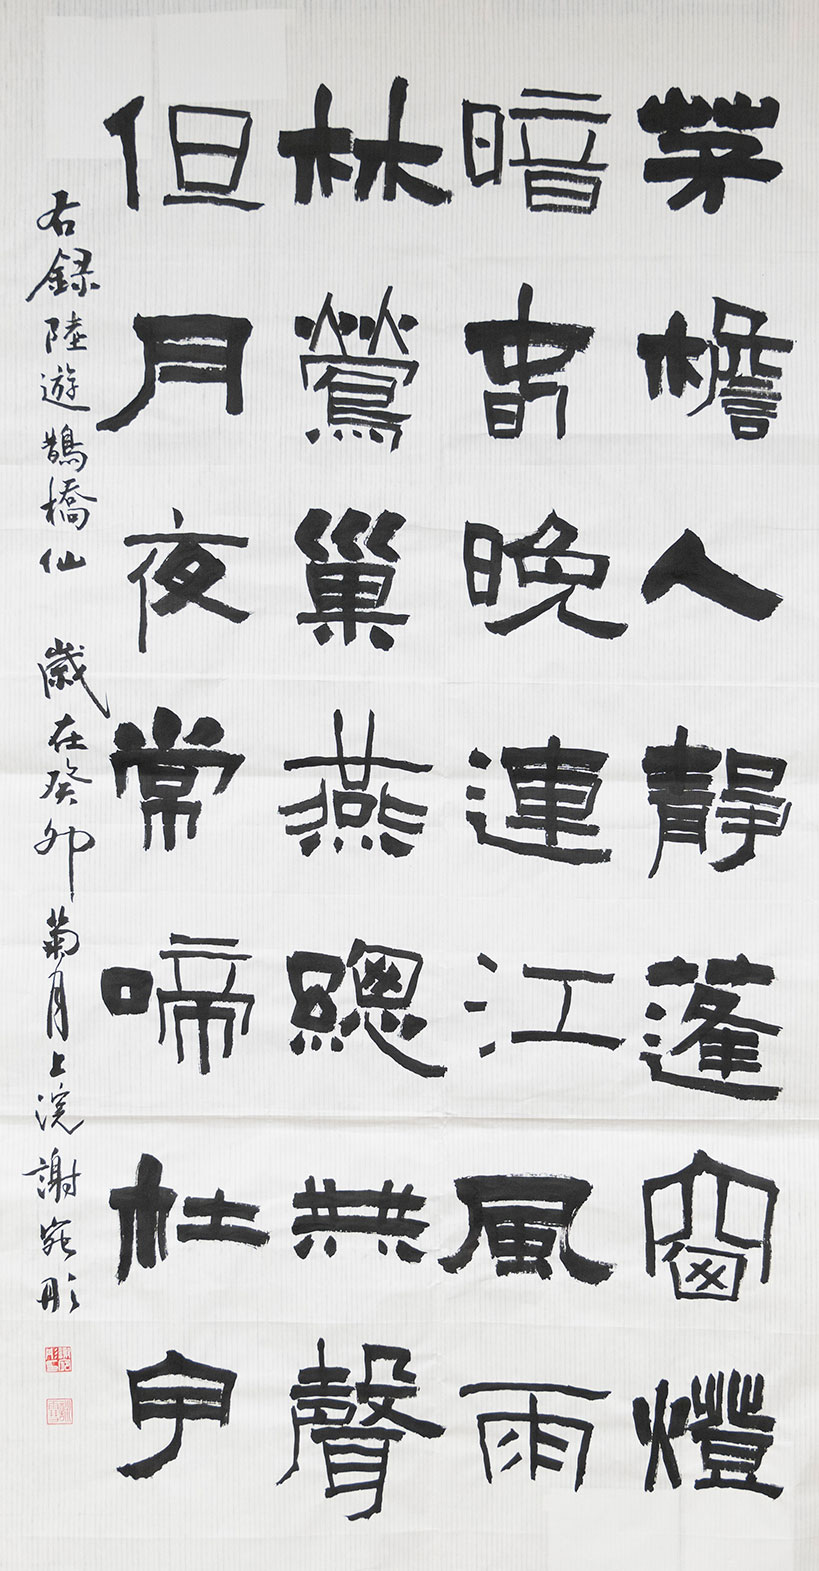 茅檐人靜蓬窗燈
暗春晚連江風雨
林鶯巢燕總無聲
但月夜常啼杜宇
右録陸遊鵲橋仙 歲在癸卯菊月上浣謝宛彤